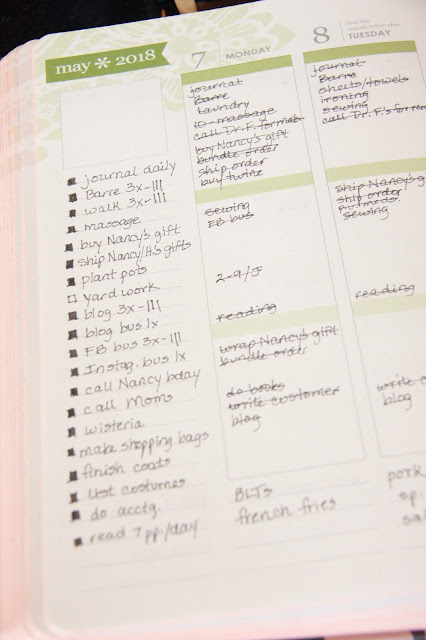 may * 2018
journal daily
Barre 3x-III
walk 3x-III
massage
buy Nancy's gift
ship Nancy/H.'s gifts
plant pots
yard work
blog 3x-III
blog bus 1x
FB bus 3x-III
Instag. bus 1x
call Nancy bday
call Moms
wisteria
make shopping bags
finish coats
list costumes
do acctg.
read 7 pp./day
7 MONDAY
journal
Barre
laundry
10-massage
call Dr. F. format
buy Nancy's gift
bundle order
ship order
buy twine
sewing
FB bus
2-9/F
reading
wrap Nancy's gift
bundle order
do books
write customer
blog
BLTs
french fries
8 teacher appreciation day
TUESDAY
journal
Barre
sheets/towels
ironing
sewing
call Dr. F's format
ship Nancy's g
ship order
sewing
reading
write c
blog
pork
sp.
sal